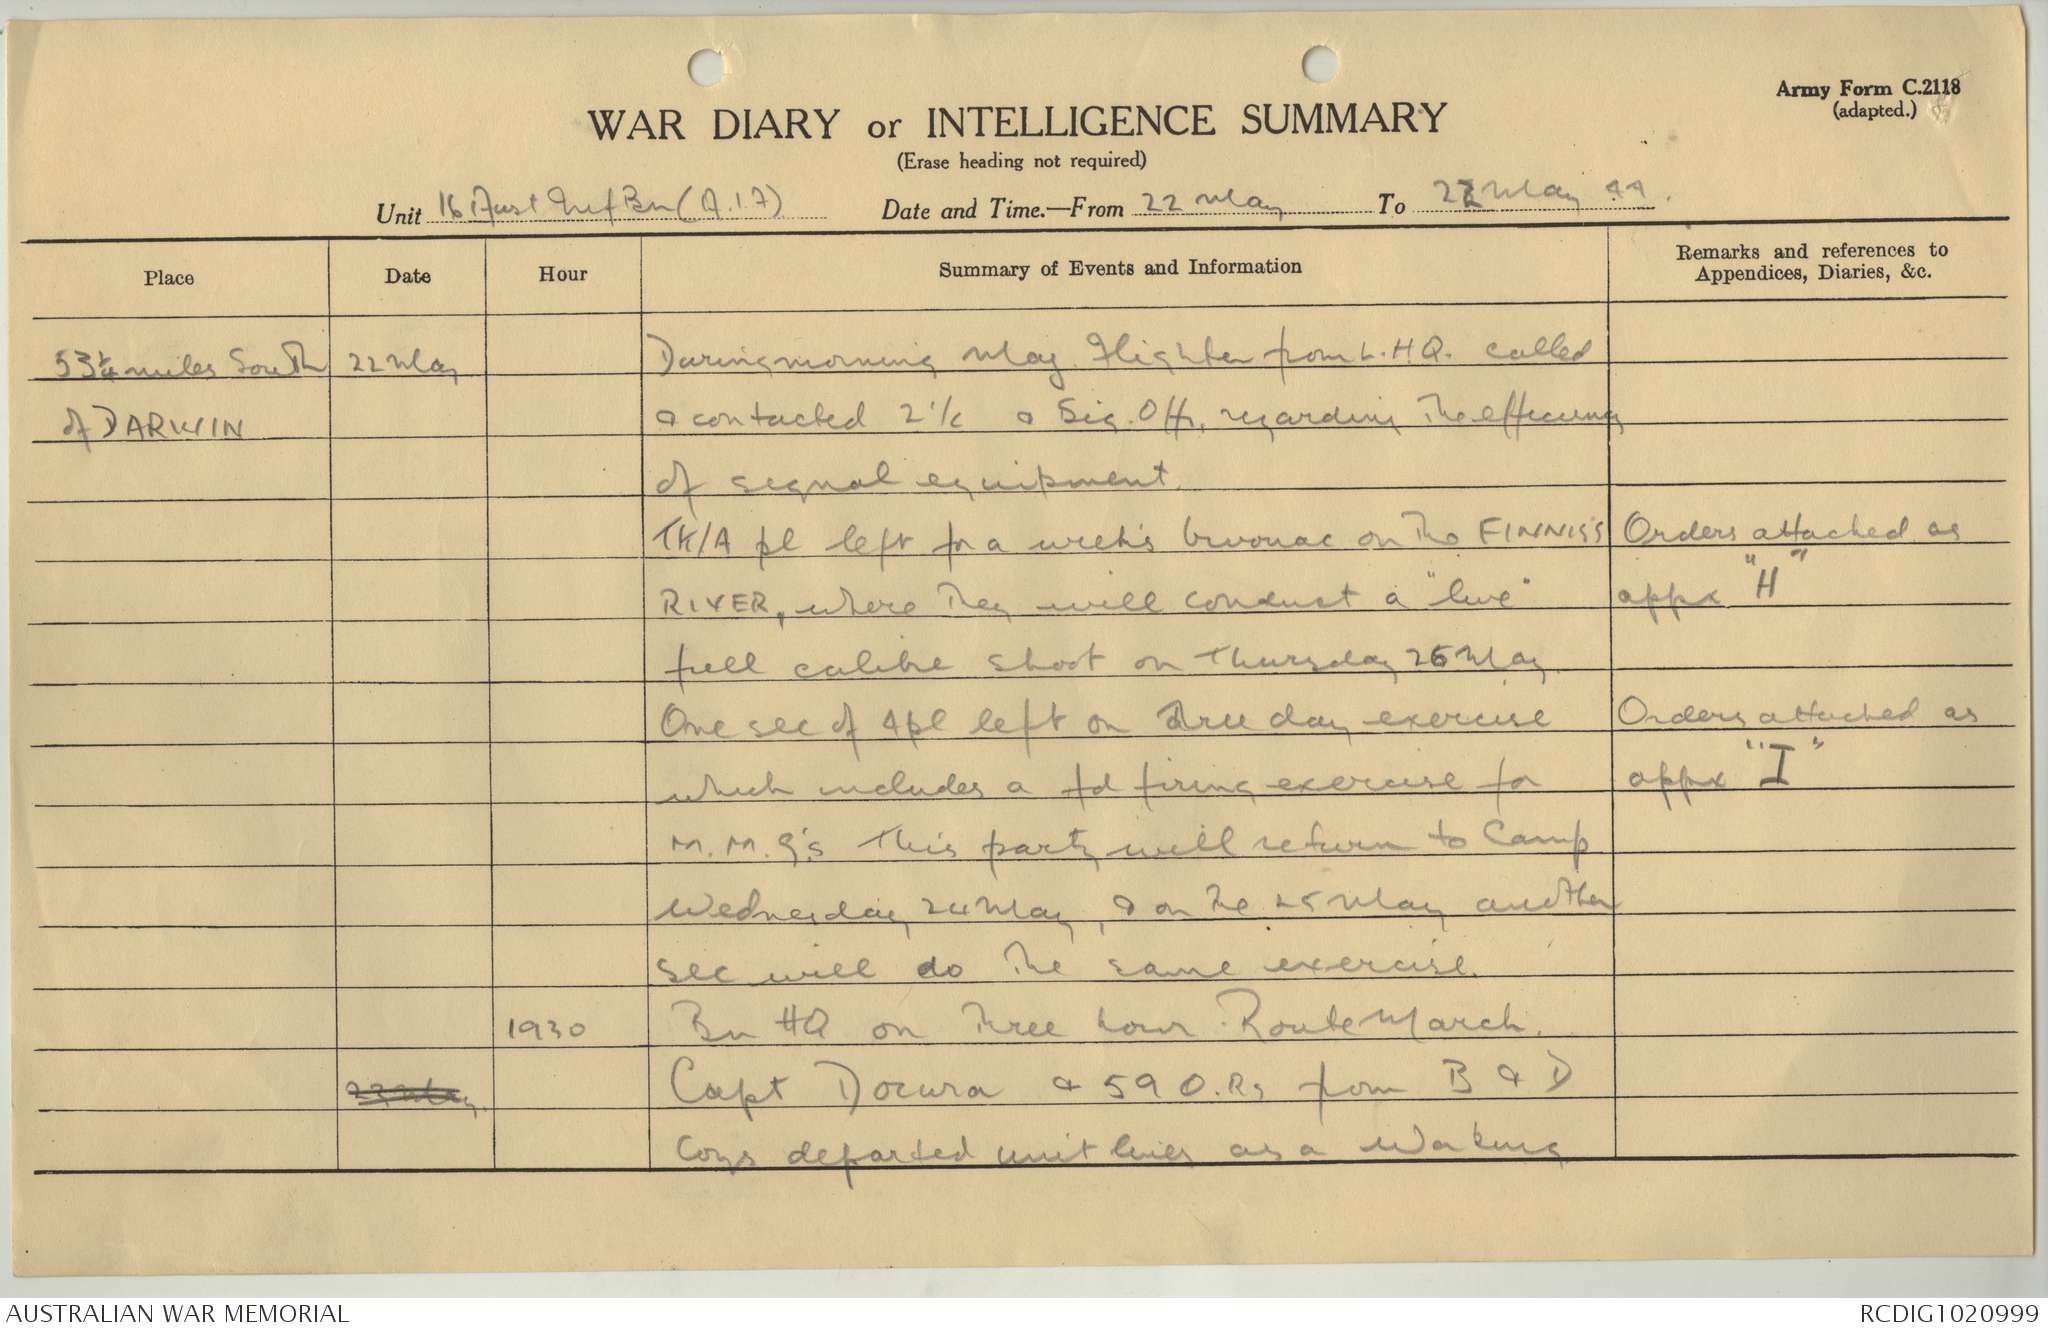 Army Form C.2118
(adapted.)
WAR DIARY or INTELLIGENCE SUMMARY
(Erase heading not required)
Unit 16 Aust Inf Bn (A.I.F)
Date and Time.—From 22 May To 22 May 44.
Place
Date
Hour
Summary of Events and Information
Remarks and references to
Appendices, Diaries, &c.
53¼ miles South 22 May During morning Maj. Flighter from L.H.Q. called
of DARWIN & contacted 2 i/c & Sig. Offr. regarding the efficiency
of signal equipment.
TK/A pl left for a week's bivouac on the FINNISS Orders attached as
RIVER, where they will conduct a "live" appx "H"
full calibre shoot on Thursday 25 May
One sec of 4 pl left on three day exercise Orders attached as
which includes a fd firing exercise for appx "I"
M.M.G's This party will return to Camp
Wednesday 24 May, & on the 25 May another
sec will do the same exercise.
1930 Bn HQ on three hour Route March.
23 May Capt Docura & 59 O.Rs from B & D
Coys departed unit lines as a working
AUSTRALIAN WAR MEMORIAL
RCDIG1020999